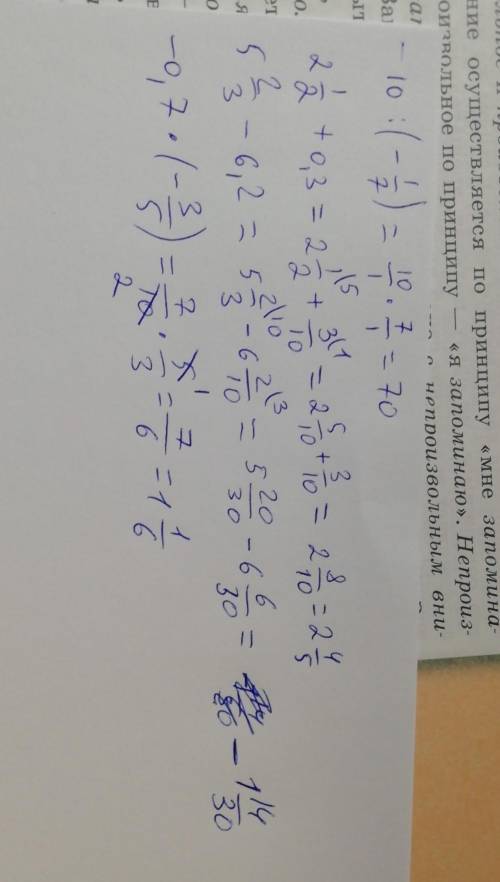 ние осуществляется по принципу «мне запомина-
оизвольное по принципу — «я запоминаю». Непроиз-
непроизвольным вни-
− 10 : (− 1/7) = 10/1 · 7/1 = 70
2 1/2 + 0,3 = 2 1\5/2 + 3\1/10 = 2 5/10 + 3/10 = 2 8/10 = 2 4/5
5 2/3 − 6,2 = 5 2\10/3 − 6 2\3/10 = 5 20/30 − 6 6/30 = − 14/30
−0,7 · (− 3/5) = 7/10 2 · 5 1/3 = 7/6 = 1 1/6